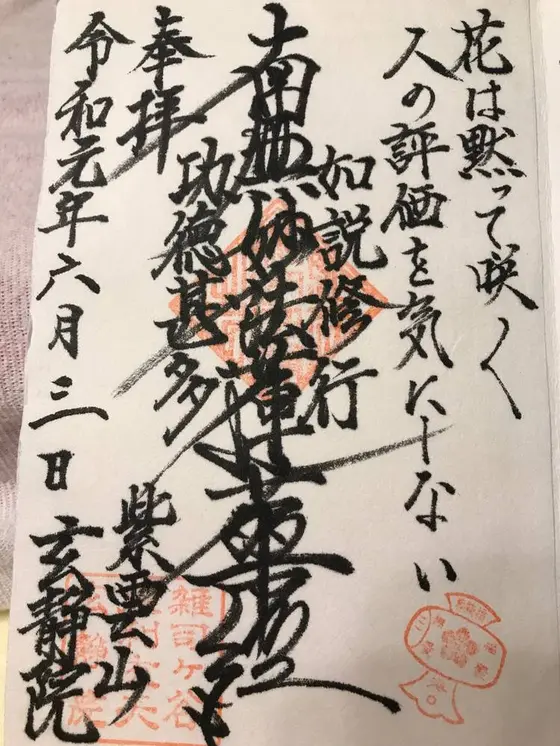 花は黙って咲く
人の評価を気にしない
如説修行
南無妙法蓮華経
功徳甚多
奉拝
紫雲山
令和元年六月三日
玄静院
雑司ヶ谷